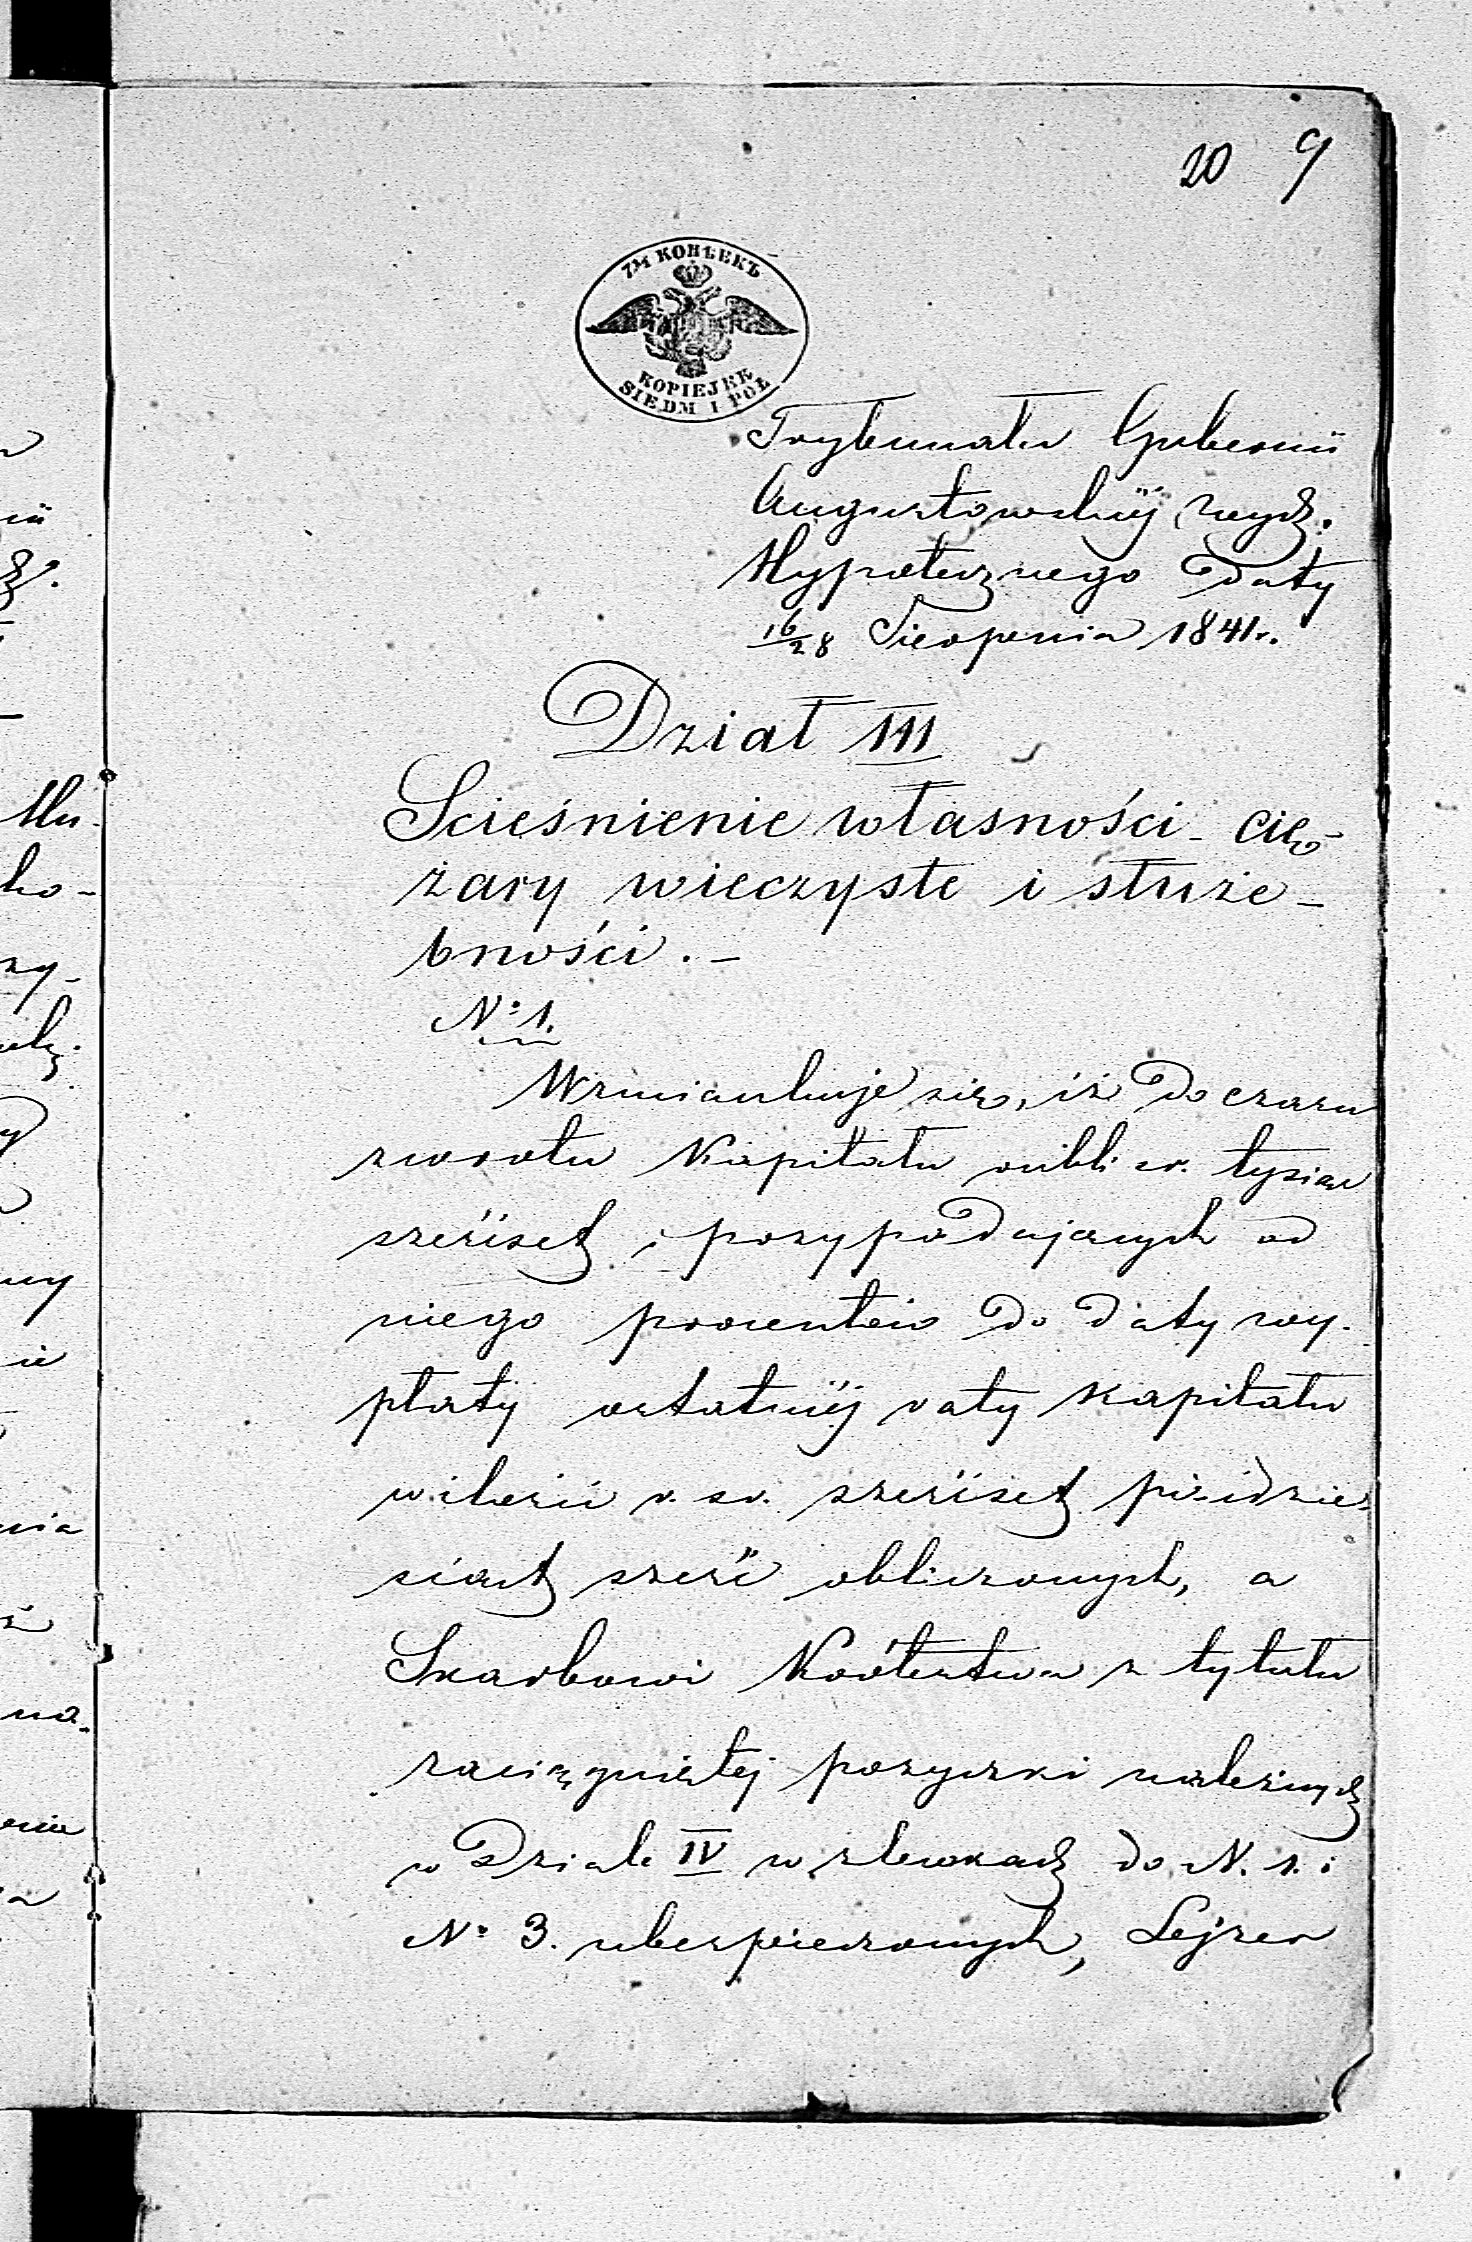 20 9
7½ КОПѢЕКЪ
KOPIEJEK
SIEDM I PÓŁ
Trybunału Gubernii
Augustowskiéj wydz.
Hypotecznego Daty
16/28 Sierpnia 1841 r.
Dział III
Scieśnienie własności - cię-
żary wieczyste i służe-
bności. -
No 1.
Wzmiankuje się, iż do czasu
zwrotu Kapitału rubli sr. tysiąc
sześćset i przypadających od
niego procentów do daty wy-
płaty ostatniéj raty Kapitału
w ilości r. sr. sześćset pięćdzie-
siąt sześć obliczonych, a
Skarbowi Królestwa z tytułu
zaciągniętej pożyczki należnych
w Dziale IV w zlewkach do N. 1. i
No 3. ubezpieczonych, Lejzer